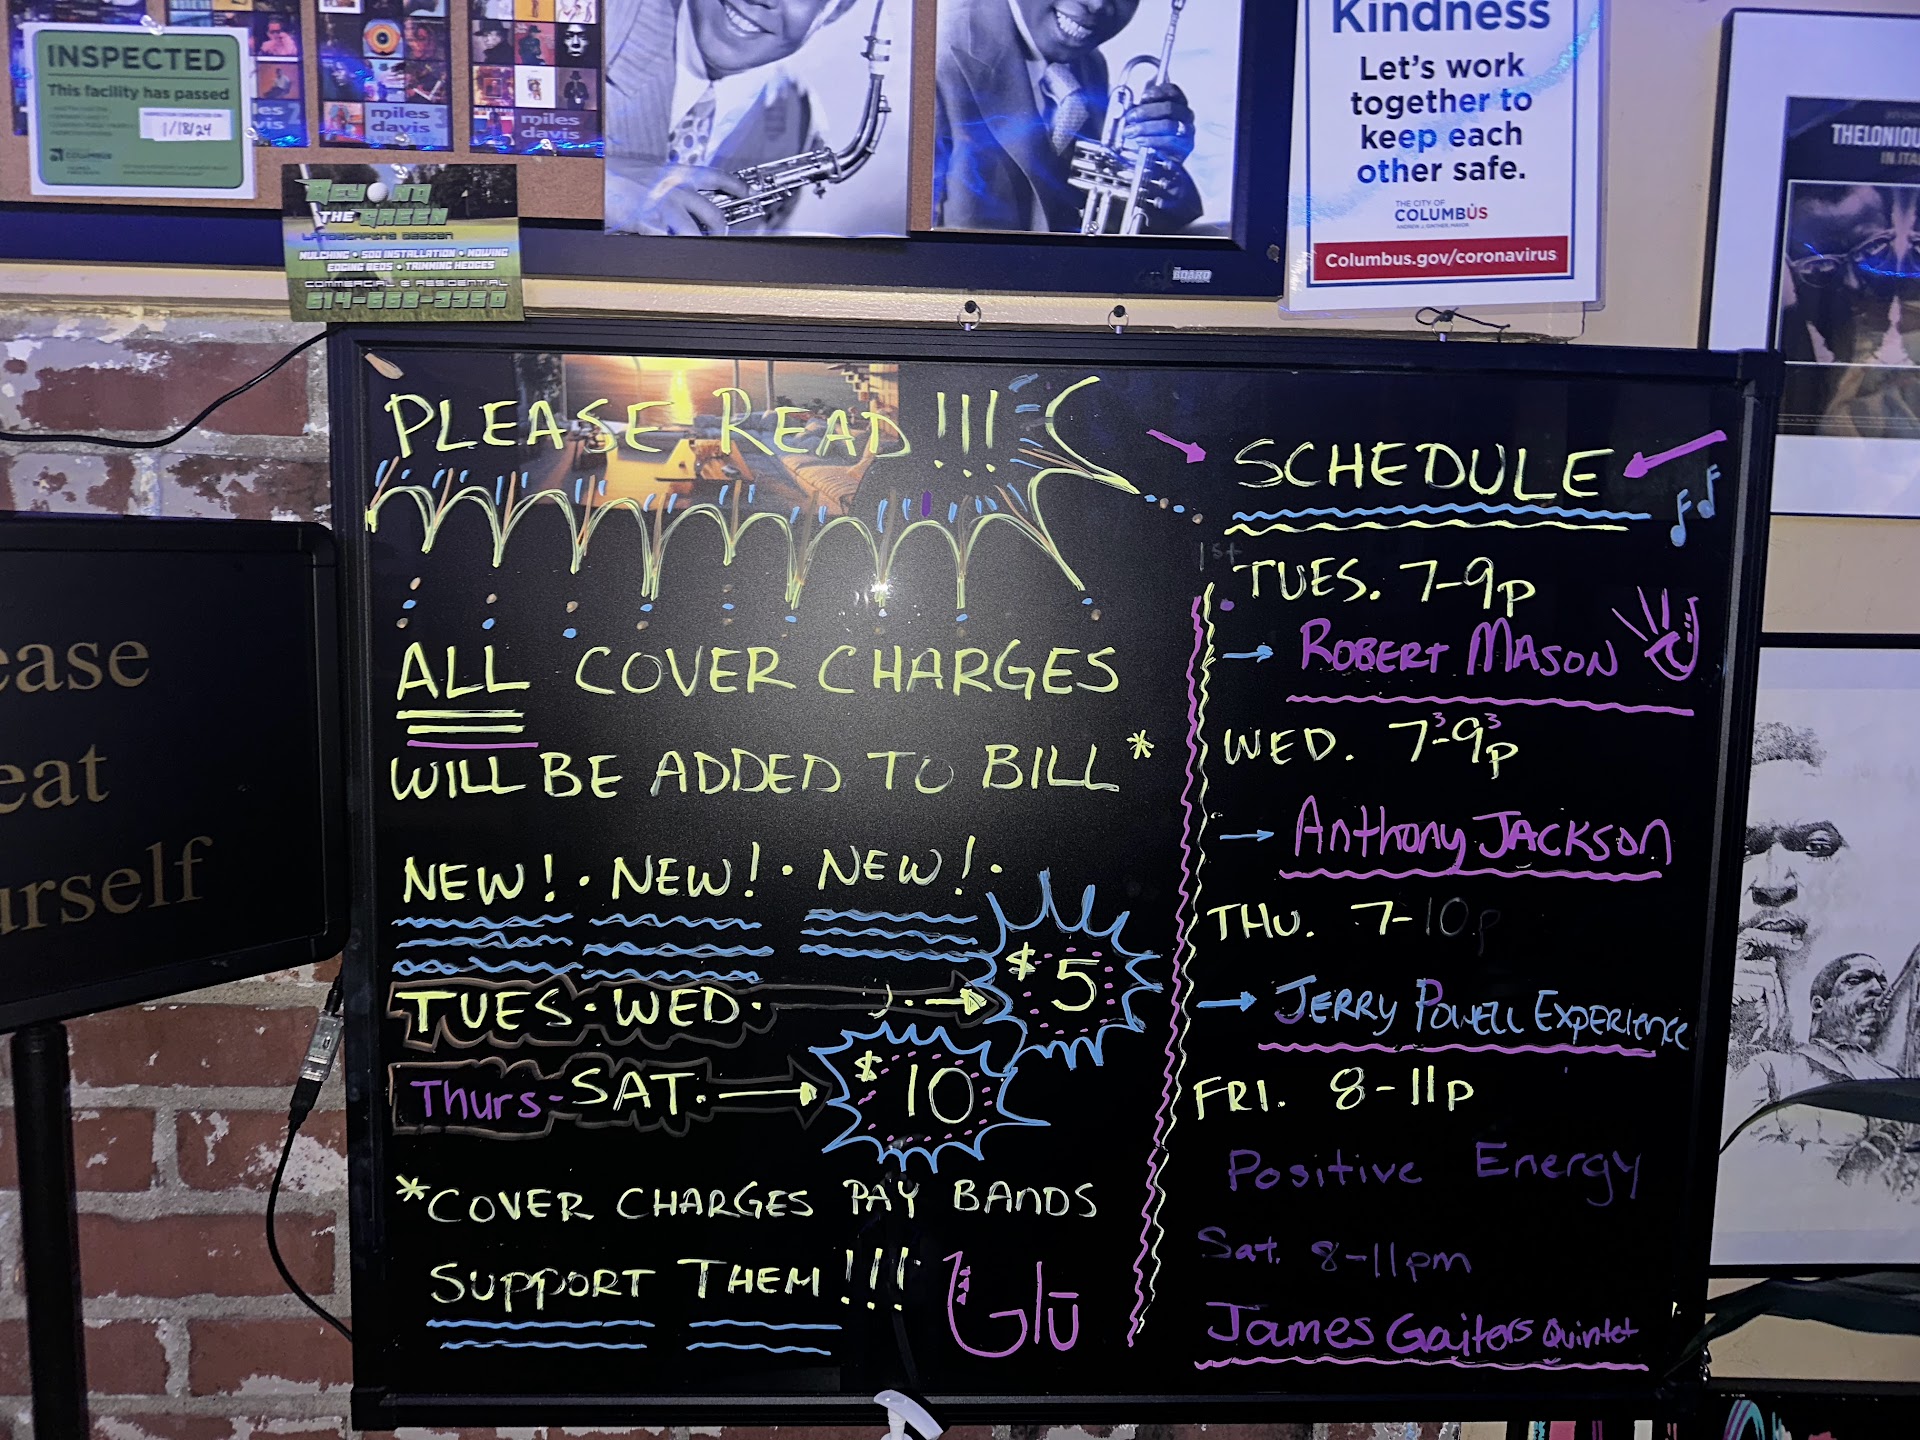 INSPECTED
This facility has passed
1/18/24
COLUMBUS
miles
davis
miles
davis
BEYOND
THE GREEN
LANDSCAPING DESIGN
MULCHING • SOD INSTALLATION • MOWING
EDGING BEDS • TRIMMING HEDGES
COMMERCIAL & RESIDENTIAL
614-668-3350
BOARD
Kindness
Let's work
together to
keep each
other safe.
THE CITY OF
COLUMBUS
ANDREW J. GINTHER, MAYOR
Columbus.gov/coronavirus
THELONIOU
IN ITA
ease
eat
urself
PLEASE READ!!!
ALL COVER CHARGES
WILL BE ADDED TO BILL*
NEW! • NEW! • NEW! •
TUES • WED • $5
Thurs - SAT. $10
*COVER CHARGES PAY BANDS
SUPPORT THEM!!!
Glū
SCHEDULE
1st
TUES. 7-9p
ROBERT MASON
WED. 7³-9³p
Anthony JACKSON
THU. 7-10p
JERRY POWELL EXPERIENCE
FRI. 8-11p
Positive Energy
Sat. 8-11pm
James Gaiters Quintet